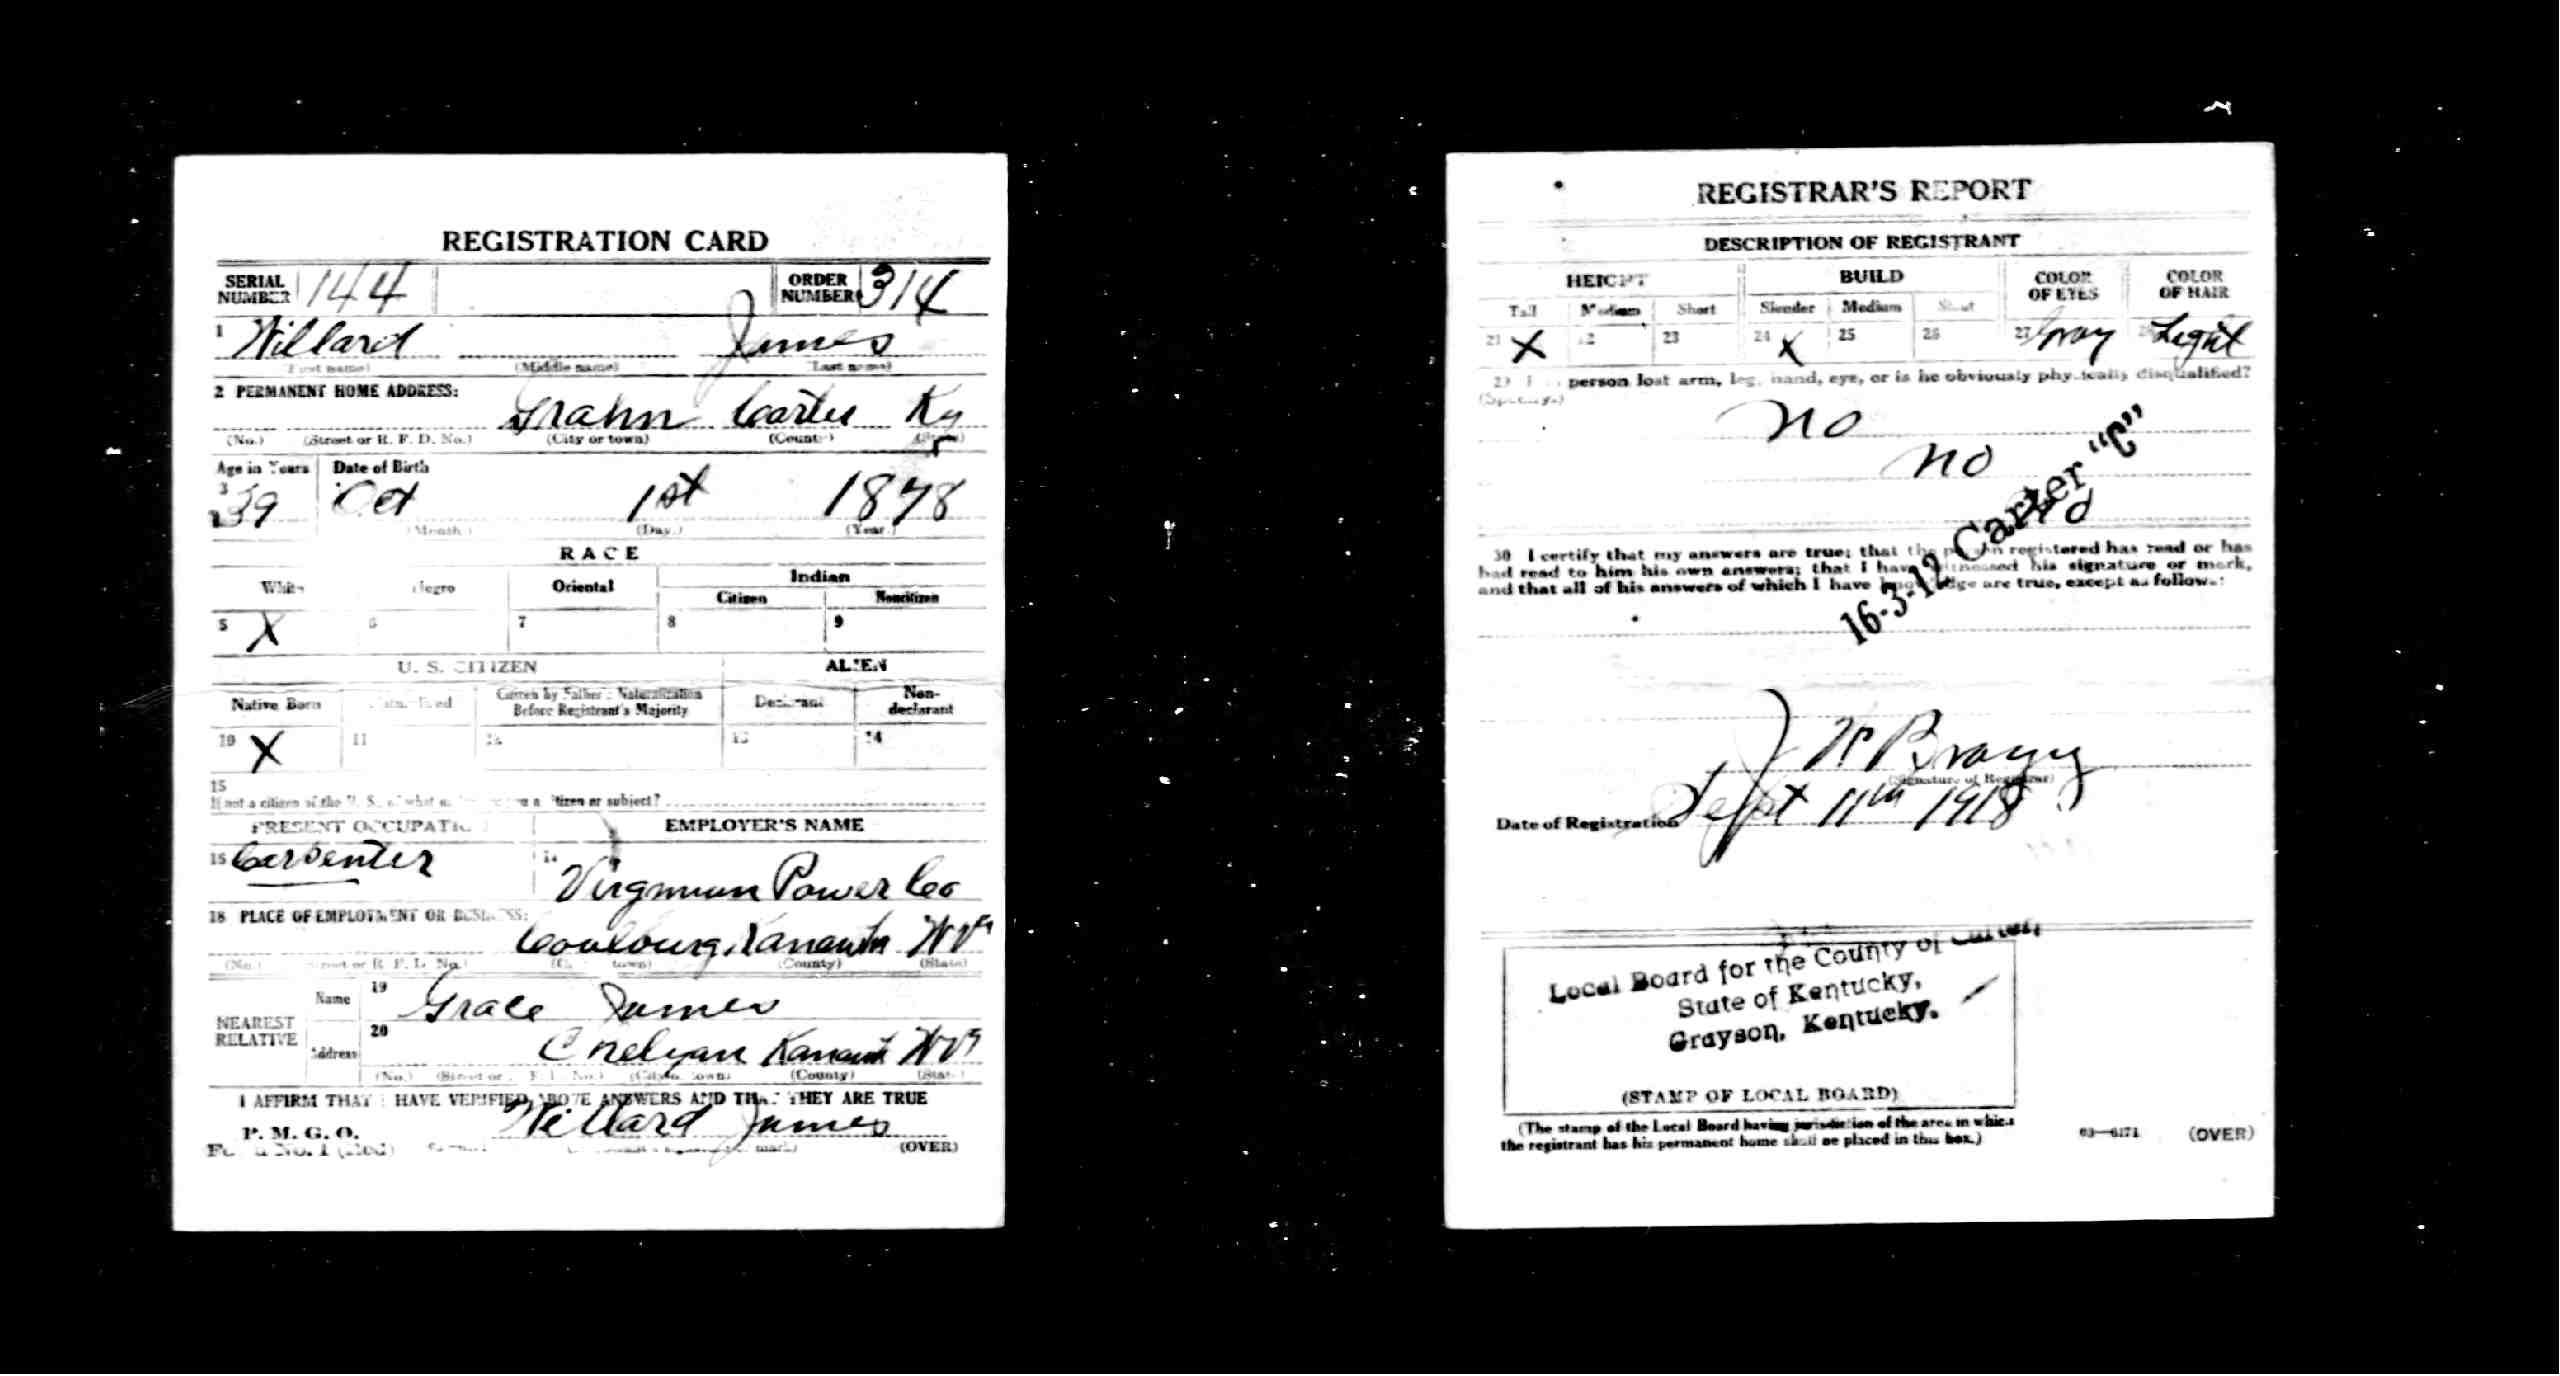 REGISTRATION CARD
SERIAL NUMBER 144 ORDER NUMBER 314
1 Willard James
(First name) (Middle name) (Last name)
2 PERMANENT HOME ADDRESS:
Grahn Carter Ky
(No.) (Street or R. F. D. No.) (City or town) (County) (State)
Age in Years Date of Birth
3 39 Oct 1st 1878
(Month.) (Day.) (Year.)
RACE
White Negro Oriental Indian
Citizen Noncitizen
5 X 6 7 8 9
U. S. CITIZEN ALIEN
Native Born Naturalized Citizen by Father's Naturalization Before Registrant's Majority Declarant Non-declarant
10 X 11 12 13 14
15
If not a citizen of the U. S., of what are you a citizen or subject?
PRESENT OCCUPATION EMPLOYER'S NAME
16 Carpenter Virginian Power Co
18 PLACE OF EMPLOYMENT OR BUSINESS:
Kanawha W Va
(No.) (Street or R. F. D. No.) (City or town) (County) (State)
NEAREST RELATIVE
Name 19 Grace James
Address 20 Chelyan Kanawha W Va
(No.) (Street or R. F. D. No.) (City or town) (County) (State)
I AFFIRM THAT I HAVE VERIFIED ABOVE ANSWERS AND THAT THEY ARE TRUE
P. M. G. O.
Form No. 1 (Red) Willard James
(OVER)
REGISTRAR'S REPORT
DESCRIPTION OF REGISTRANT
HEIGHT BUILD COLOR OF EYES COLOR OF HAIR
Tall Medium Short Slender Medium Stout
21 X 22 23 24 X 25 26 27 Gray 28 Light
29 person lost arm, leg, hand, eye, or is he obviously physically disqualified?
(Specify.)
no
no
no
16-3-12 Carter "C"
30 I certify that my answers are true; that the person registered has read or has
had read to him his own answers; that I have witnessed his signature or mark,
and that all of his answers of which I have knowledge are true, except as follows:
J W
(Signature of Registrar)
Date of Registration Sept 11th 1918
Local Board for the County of Carter,
State of Kentucky,
Grayson, Kentucky.
(STAMP OF LOCAL BOARD)
(The stamp of the Local Board having jurisdiction of the area in which
the registrant has his permanent home shall be placed in this box.)
03—6171 (OVER)